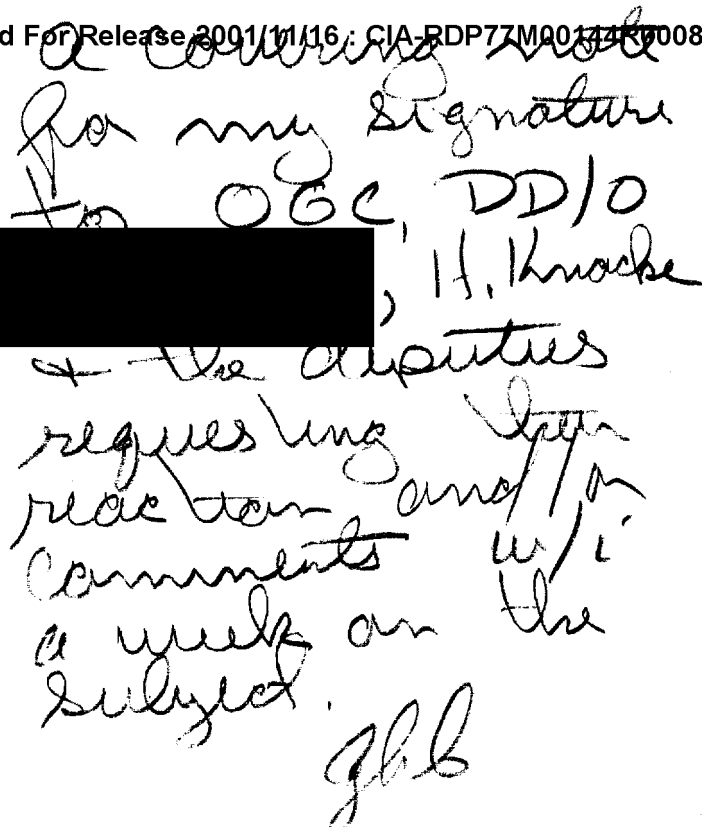 d For Release 2001/11/16 : CIA-RDP77M00144R0008
a covering note
for my signature
to OGC, DD/O
, H. Knoche
+ the deputies
requesting their
reaction and/or
comments w/i
a week on the
subject.